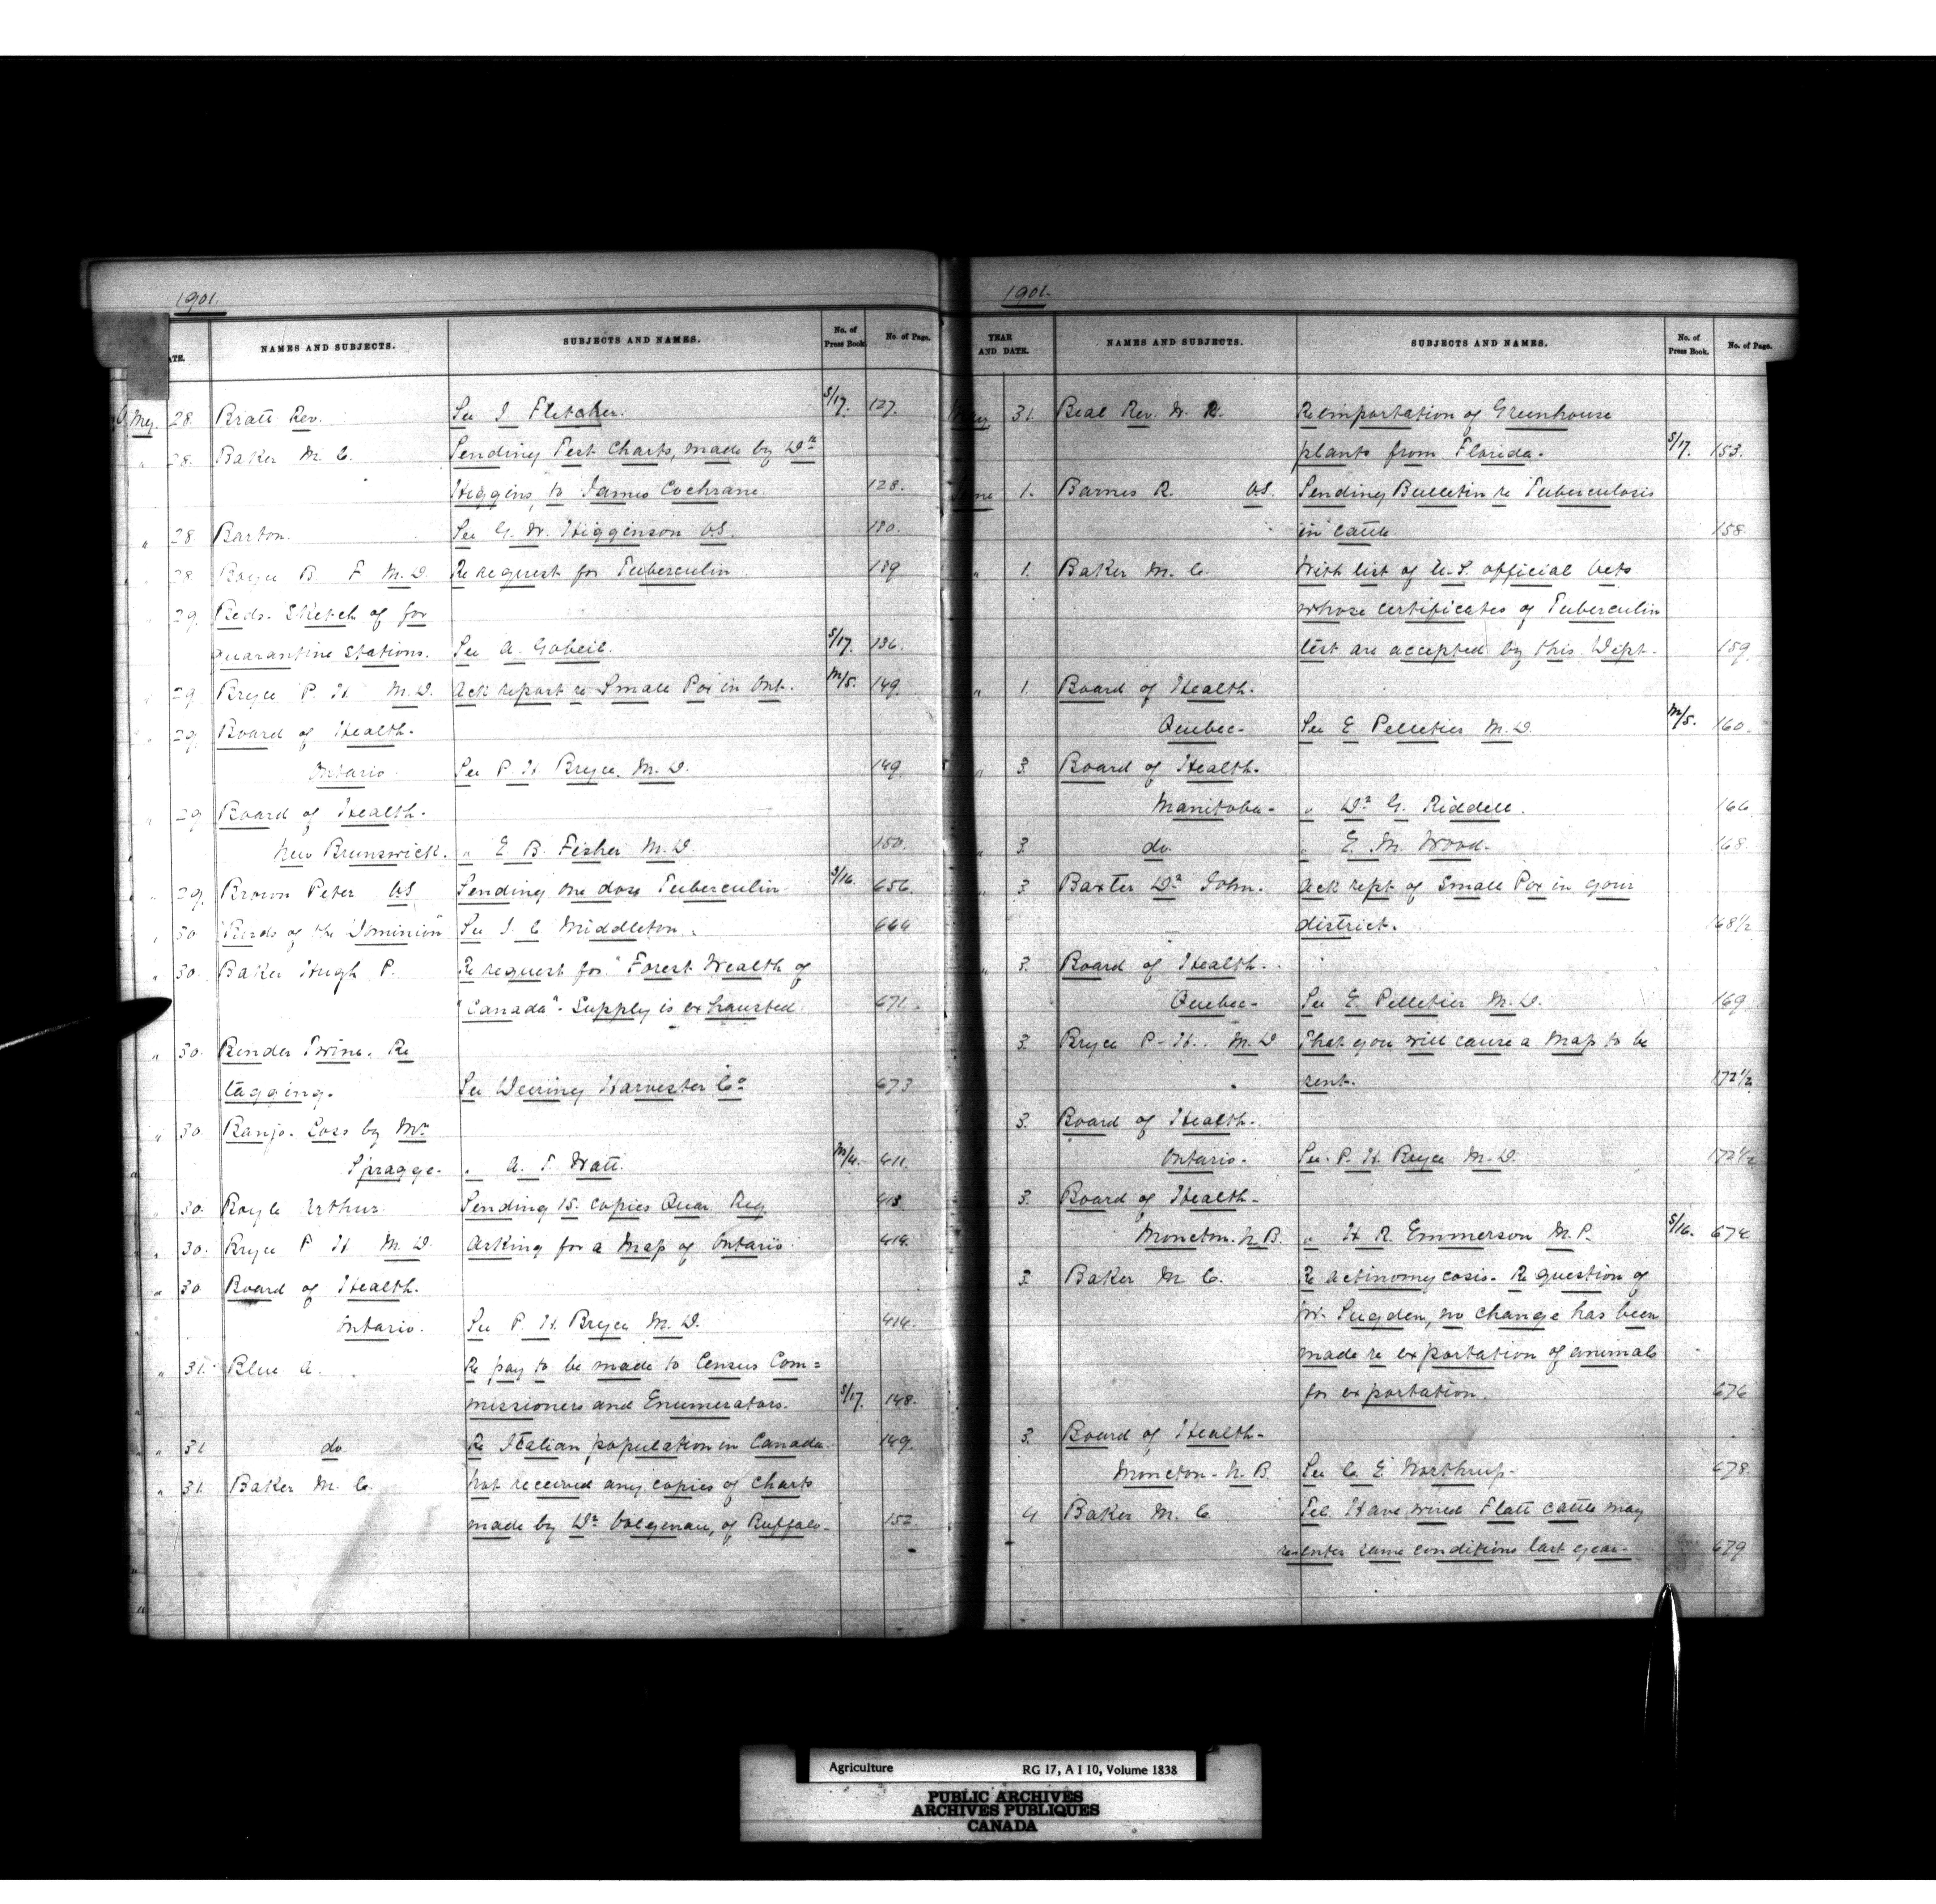 1901.
DATE. NAMES AND SUBJECTS. SUBJECTS AND NAMES. No. of Press Book. No. of Page.
May. 28. Bratt Rev. See J. Fletcher. S/17. 127.
" 28. Baker M. C. Sending Test Charts, made by Dr
Higgins, to James Cochrane. 128.
" 28 Barton. See G. W. Higginson V.S. 130.
" 28 B. F M.D. Re request for Tuberculin. 139
" 29. Beds. Sketch of for
quarantine stations. See A. Gobeil. S/17. 136.
" 29 Bryce P. H M.D. Ack report re Small Pox in Ont. M/5. 149.
" 29 Board of Health.
Ontario. See P H Bryce, M.D. 149.
" 29 Board of Health.
New Brunswick. " E B. Fisher M.D. 150.
" 29. Brown Peter VS Sending one dose Tuberculin. S/16. 656.
" 30 "Birds of the Dominion" See J. C Middleton. 664
" 30. Baker Hugh P. Re request for "Forest Wealth of
"Canada". Supply is exhausted. 671.
" 30. Binder Twine. Re
tagging. See Deering Harvester Co 673
" 30. Banjo. Loss by Mr
Spragge. " A. T. Watt. M/4. 411.
" 30. Boyle Arthur. Sending 15. copies Quar. Reg 413
" 30. Bryce P H M.D. Asking for a Map of Ontario. 414.
" 30 Board of Health.
Ontario. See P. H. Bryce M.D. 414.
" 31. Blue A. Re pay to be made to Census Com=
missioners and Enumerators. S/17. 148.
" 31 do Re Italian population in Canada. 149.
" 31. Baker M. C. Not received any copies of Charts
made by Dr Volgenau, of Buffalo. 152.
1901.
YEAR AND DATE. NAMES AND SUBJECTS. SUBJECTS AND NAMES. No. of Press Book. No. of Page.
May 31. Beal Rev. W. R. Re importation of Greenhouse
plants from Florida. S/17. 153.
June 1. Barnes R. VS. Sending Bulletin re Tuberculosis
in cattle. 158.
" 1. Baker M. C. With list of U.S. official Vets
whose certificates of Tuberculin
test are accepted by this Dept. 159
" 1. Board of Health.
Quebec. See E Pelletier M.D. M/5. 160.
" 3. Board of Health.
Manitoba. " Dr G. Riddell. 166
" 3. do. " E. M. Wood. 168.
" 3 Baxter Dr John. Ack rept of Small Pox in your
district. 168½
" 3. Board of Health.
Quebec. See E. Pelletier M.D. 169
3. Bryce P. H. M.D That you will cause a Map to be
sent. 172½
3. Board of Health.
Ontario. See. P. H. Bryce M.D. 172½
3. Board of Health.
Moncton. N.B. " H R. Emmerson M.P. S/16. 674
3. Baker M C. Re actinomycosis. Re question of
W. Sugden, no change has been
made re exportation of animals
for exportation. 676
3. Board of Health.
Moncton. N.B. See C. E. Northrup. 678.
4 Baker M. C. Tel. Have wired Flatt cattle may
re-enter same conditions last year. 679
Agriculture RG 17, A I 10, Volume 1838
PUBLIC ARCHIVES
ARCHIVES PUBLIQUES
CANADA